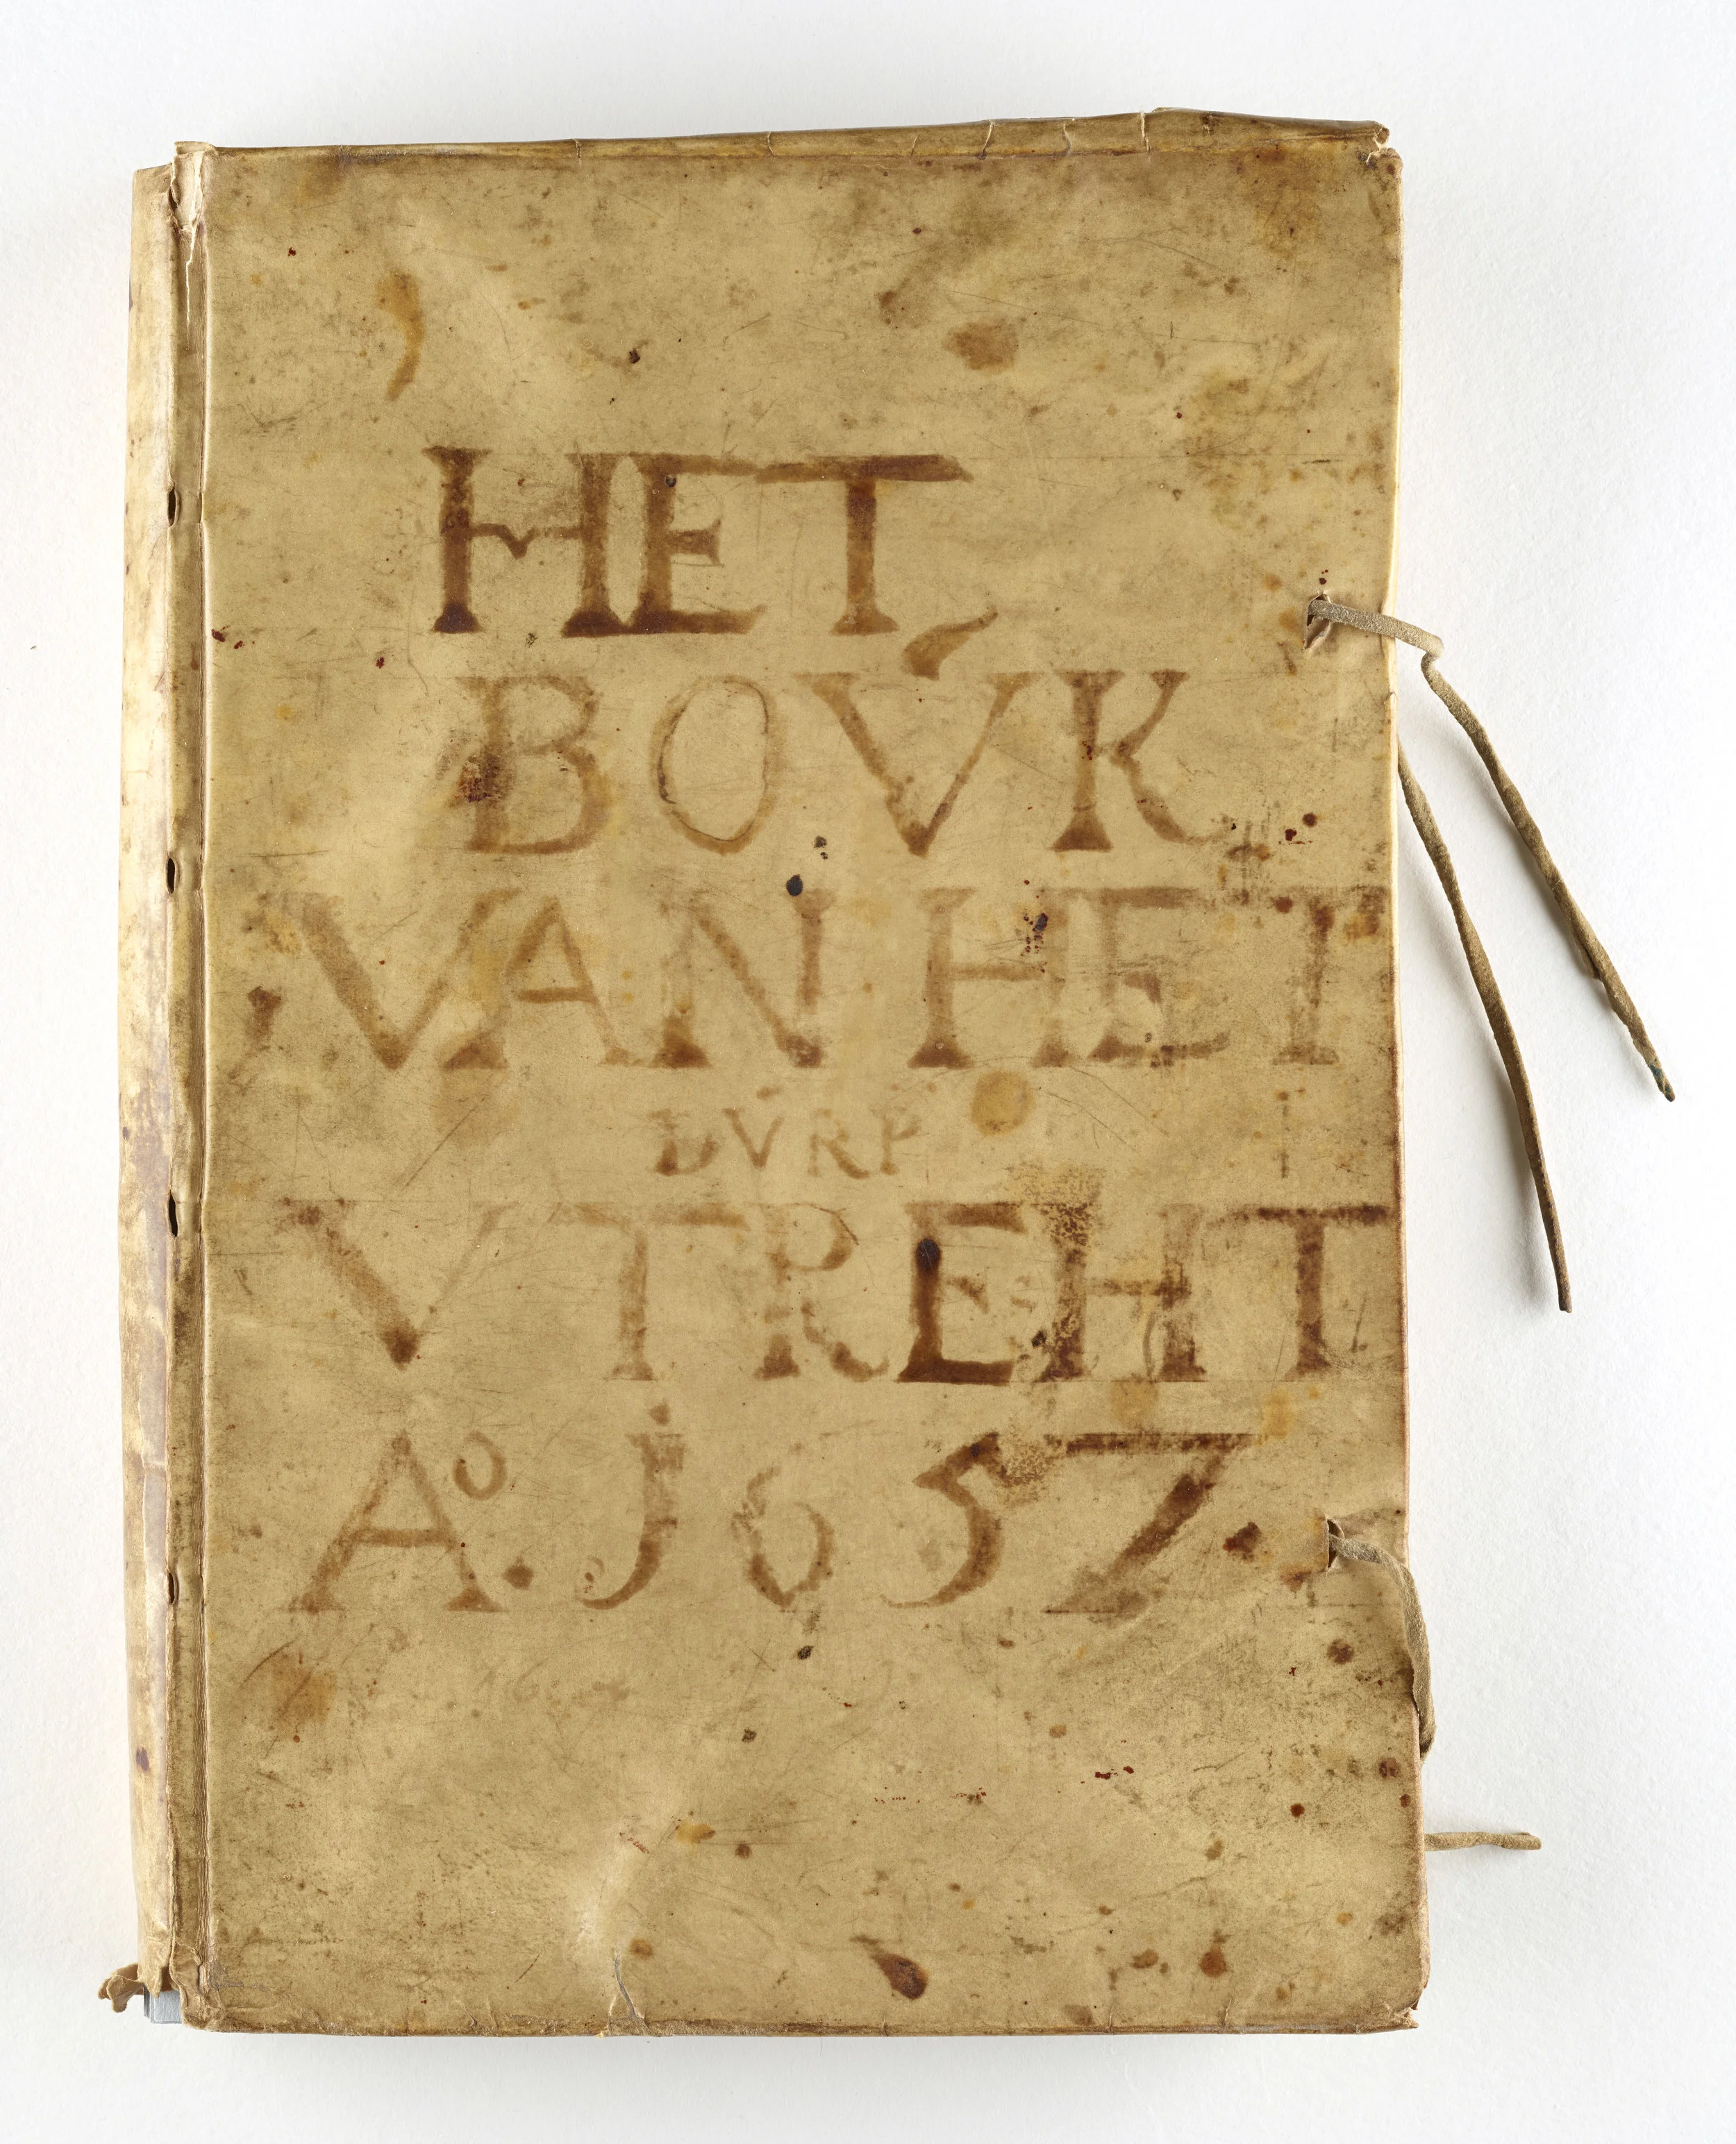 HET
BOV́K
VAN HET
DV́RP
VTREHT
Aº. J657.